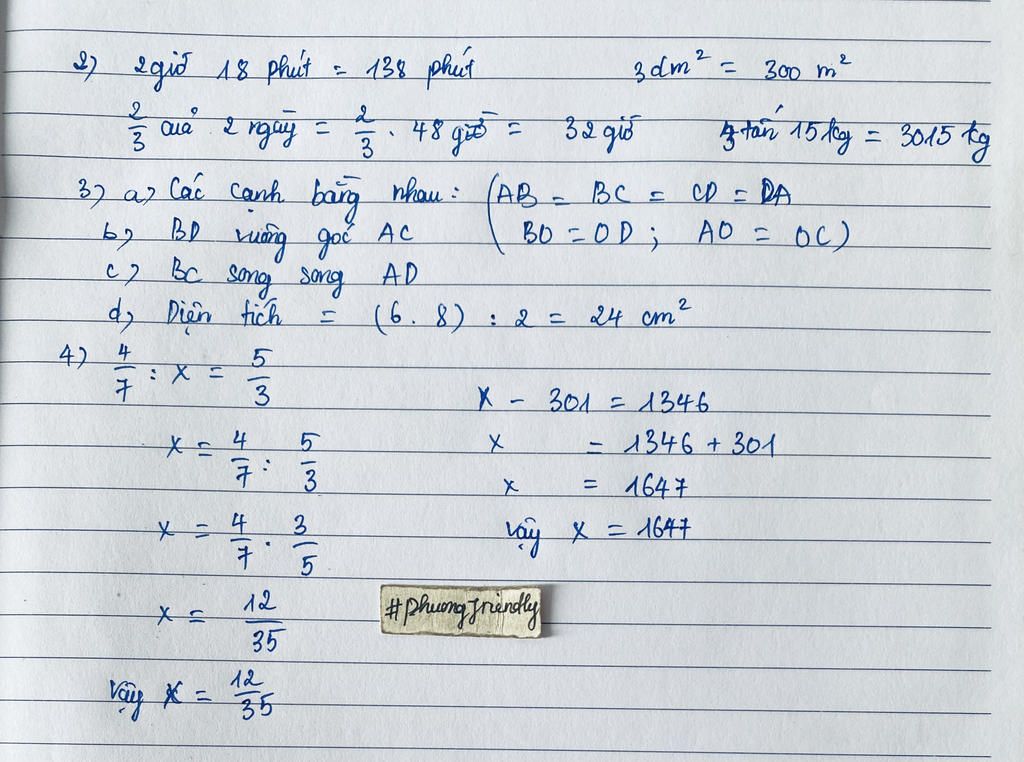 2) 2giờ 18 phút = 138 phút 3dm² = 300 m²
2/3 của 2 ngày = 2/3 . 48 giờ = 32 giờ 3 tấn 15 kg = 3015 kg
3) a, Các cạnh bằng nhau : (AB = BC = CD = DA
b, BD vuông góc AC BO = OD ; AO = OC)
c, BC song song AD
d, Diện tích = (6 . 8) : 2 = 24 cm²
4) 4/7 : x = 5/3
x - 301 = 1346
x = 4/7 : 5/3
x = 1346 + 301
x = 1647
x = 4/7 . 3/5
Vậy x = 1647
x = 12/35
#phuongfriendly
Vậy x = 12/35